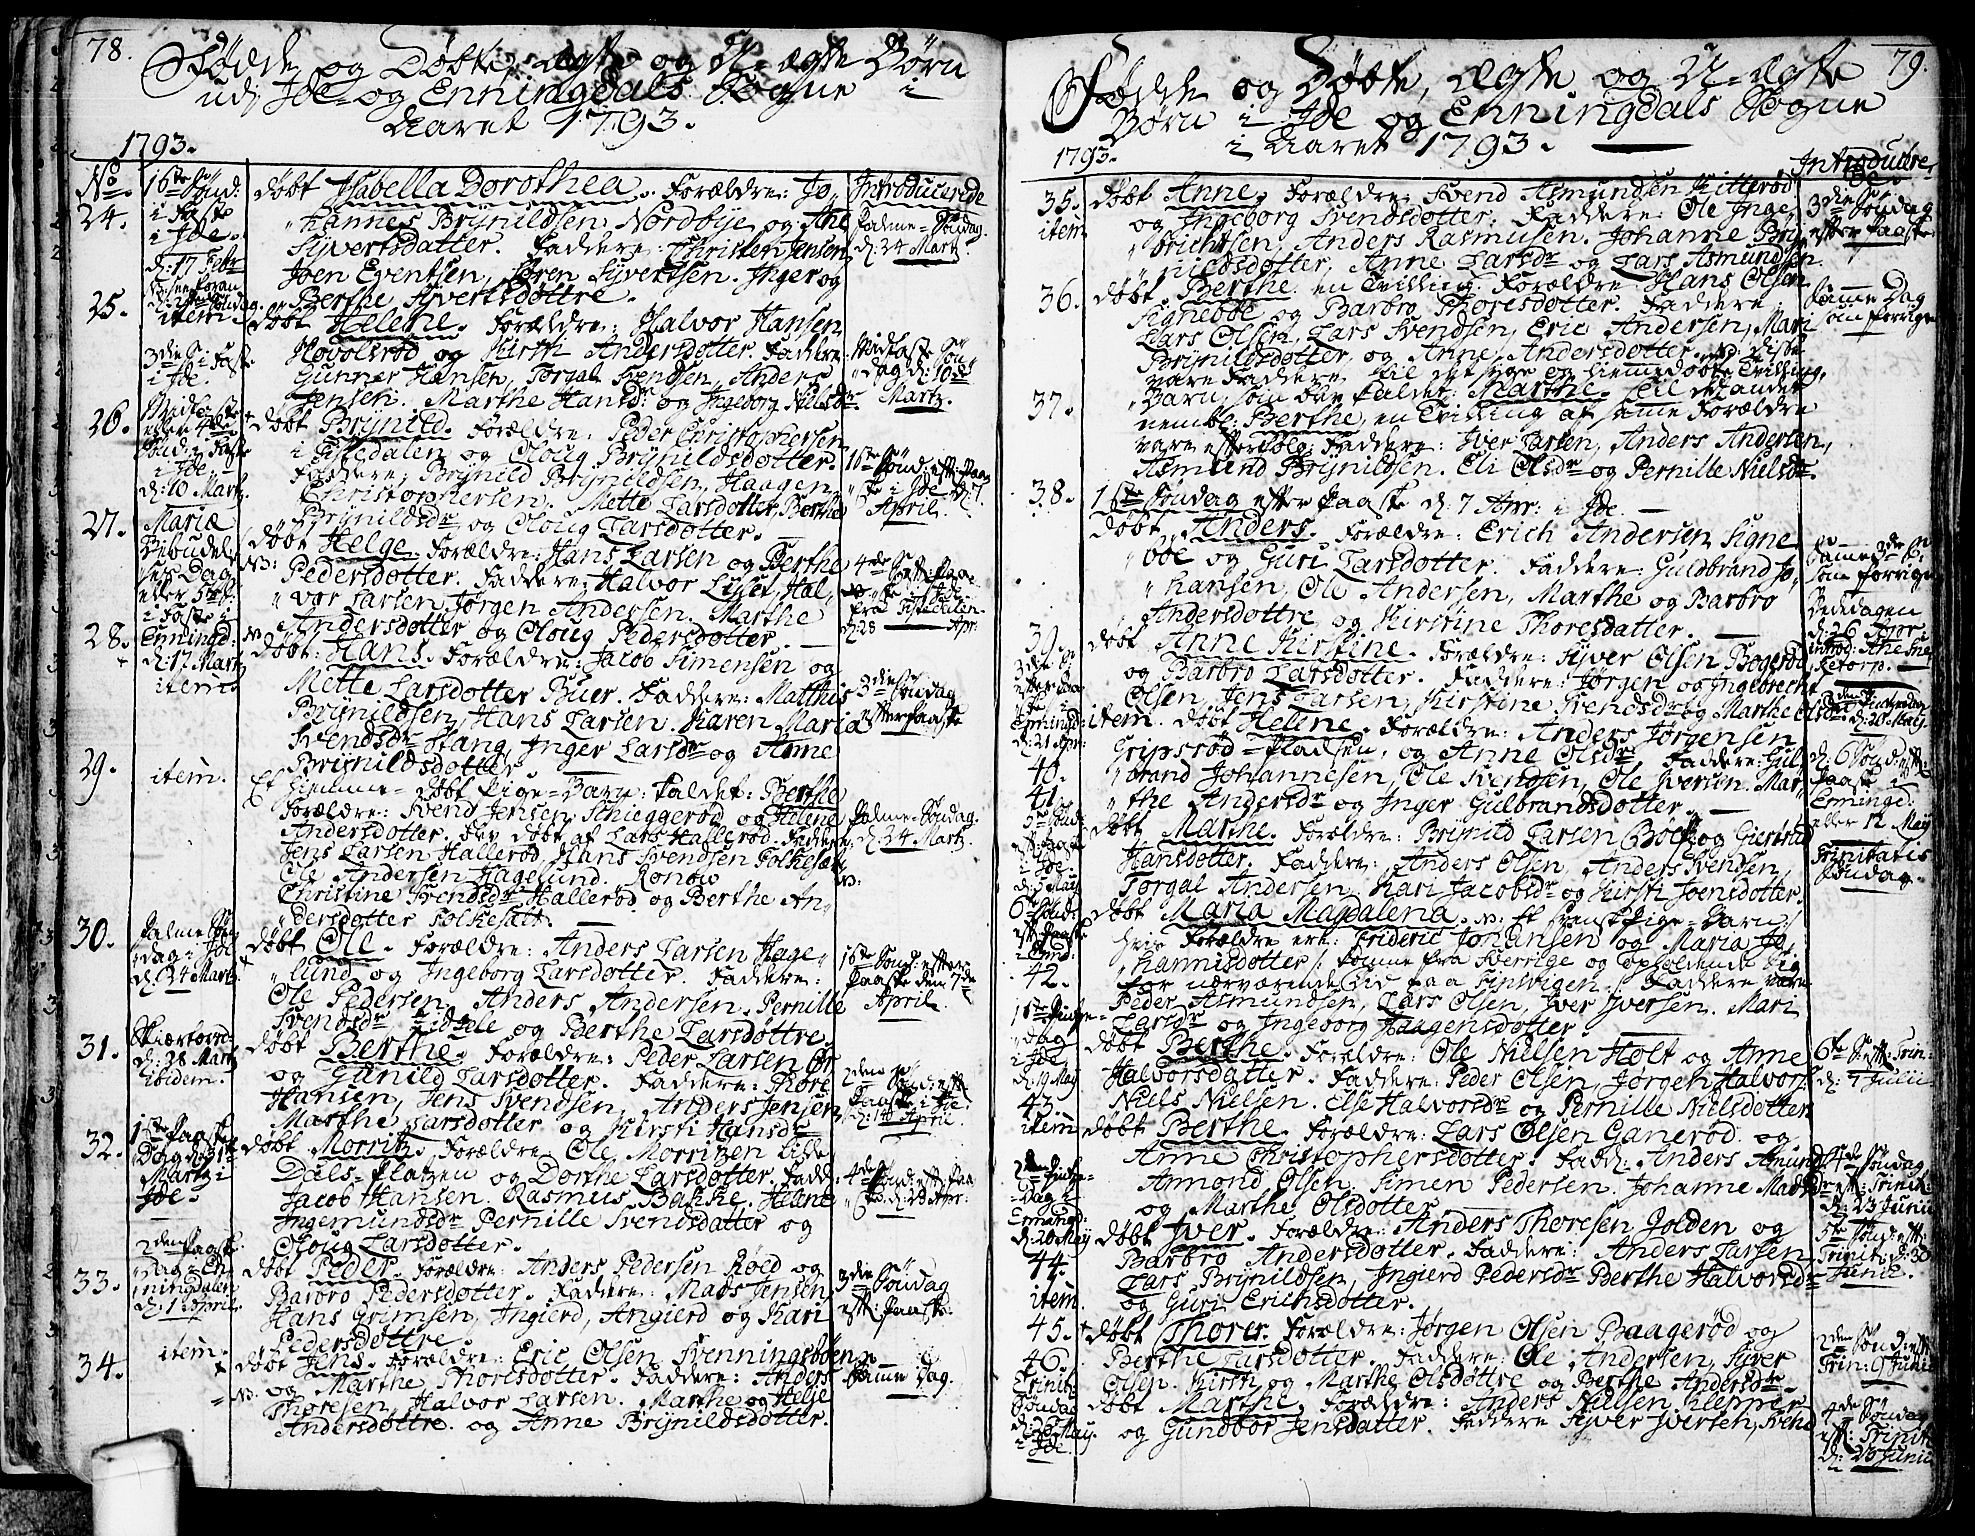 78.
Fødde og Døbte, ægte og U-ægte Børn
udj Jde- og Enningdals Sogne i
Aaret 1793.
1793.
No 24.
16de Sønd:
i Faste
i Jde.
d: 17 Febr
døbt Isabella Dorothea. Forældre: Jo-
hannes Brÿnildsen Nordbÿe og Ane
Syvertsdatter. Faddere: Christen Jensen,
Joen Eventsen, Søren Syvertsen. Inger og
Berthe Syvertsdøttre.
Introducerede
Palme-Søndag
d: 24 Martz
25.
item.
3die S: i Faste
i Jde.
døbt Helene. Forældre: Halvor Hansen
Hovolsrød og Kirsti Andersdotter. Faddere
Gunner Hansen, Torgal Svendsen, Anders
Jensen. Marthe Hansdr og Ingeborg Nilsdr
Midfaste Søn-
dag d: 10de
Martz
26.
Midfaste
eller 4de
Sønd: i Faste
i Jde.
d: 10 Martz
døbt Brÿnild. Forældre: Peder Christophersen
i Tistedalen og Oloug Brÿnildsdotter.
Faddere, Brÿnild Brÿnildsen, Haagen
Christophersen. Mette Larsdotter, Berthe
Brÿnildsdr og Oloug Larsdotter.
1ste Sønd: eft: Paa-
ske i Jde d: 7
April.
27.
Mariæ
Bebudel-
ses Dag
eller 5te S:
i Faste i
Enningd:
d: 17 Martz
døbt Helge. Forældre: Hans Larsen og Berthe
Pedersdotter. Faddere: Halvor Lisset, Hal-
vor Larsen, Jørgen Andersen, Marthe
Andersdotter og Oloug Pedersdotter.
4de Sønd: eft: Paa-
ske i Jde
fra Tistedalen
d: 28 Apr:
28.
item
døbt: Hans. Forældre: Jacob Simensen og
Mette Larsdotter Buer. Faddere: Matthis
Brÿnildsen, Hans Larsen. Karen Maria
Svendsdr Stang, Inger Larsdr og Anne
Brÿnildsdotter
3die Søndag
efter Paaske
29.
item.
Et hiemme-døbt Pige-Barn: kaldet: Berthe
Forældre: Svend Jensen Schieggerød og Helene
Andersdotter. blev døbt af Lars Hallerød. Faddere
Jens Larsen Hallerød, Hans Svendsen Folkesæt
Ole Andersen Hagelund. Ronow
Christine Svendsdr Hallerød og Berthe An-
dersdotter Folkesæt.
Palme-Søndag.
d: 24 Martz.
30.
Palme Søn-
dag i Jde
d: 24 Martz
døbt Ole. Forældre: Anders Larsen Hage-
lund og Ingeborg Larsdotter. Faddere:
Ole Pedersen, Anders Andersen. Pernille
Svendsdr, Sidsele og Berthe Larsdøttre.
1ste Sønd: efter
Paaske den 7de
April
31.
Skiærtorsd:
d: 28 Martz
ibidem.
døbt Berthe. Forældre: Peder Larsen Ør
og Gunild Larsdotter. Faddere: Thore
Hansen, Jens Svendsen, Anders Jensen,
Marthe Larsdotter og Kirsti Hansdr
2den
Sønd: eft:
Paaske i Jde.
d: 14 April.
32.
1ste Paaske
Dag d: 31te
Martz i
Jde
døbt Morritz. Forældre: Ole Morritzen lille
Dals-Platzen og Dorthe Larsdotter. Fadd:
Jacob Hansen. Rasmus Bakke. Helene
Ingemundsdr Pernille Svendsdatter og
Oloug Larsdotter.
4de Sønd: eft: Paa-
ske. d: 28 Apr:
33.
2den Paaske
Dag i En-
ningdalen
d: 1 April.
døbt Peder. Forældre: Anders Pedersen Røed og
Barbro Pedersdotter. Faddere: Mads Jensen
Hans Grimsen, Ingierd, Angierd og Kari
Pedersdøttre
3die Søndag
eft: Paaske.
34.
item.
døbt Jens. Forældre: Eric Olsen Svenningsbøen
og Marthe Thoresdotter. Faddere: Anders
Thoresen, Halvor Larsen. Marthe og Helje
Andersdøttre. og Anne Brÿnildsdotter.
Samme Dag.
79.
Fødde og Døbte, ægte og U-ægte
Børn i Jde og Enningdals Sogne
i Aaret 1793.
1793.
Introducere-
de
35.
item
døbt Anne. Forældre: Svend Asmundsen Kitterød
og Ingeborg Svendsdotter. Faddere: Ole Inge-
brichtsen, Anders Rasmusen. Johanne Brÿ-
nildsdotter, Anne Larsdr og Lars Asmundsen.
3die Søndag
efter Paaske
36.
døbt. Berthe en Tvilling. Forældre Hans Olsen
Signebøe og Barbro Thoresdotter. Faddere:
Lars Olsen, Lars Svendsen, Eric Andersen, Mari
Brÿnildsdotter og Anne Andersdotter. disse
vare Faddere til det syge og hiemmedøbte Tvilling-
Samme Dag
som forrige
37.
Barn, som blev kaldet: Marthe. Til det andet
nembl: Berthe, en Tvilling af samme Forældre
vare efterfølg: Faddere: Iver Larsen, Anders Andersen,
Asmund Brÿnildsen. Eli Olsdr og Pernille Nielsdr.
38.
1ste Søndag efter Paaske d: 7 Apr: i Jde.
døbt Anders. Forældre: Erich Andersen Signe-
bøe og Guri Larsdotter. Faddere: Guldbrand Jo-
hansen, Ole Andersen, Marthe og Barbro
Andersdøttre og Kirstine Thoresdatter.
Samme
som forrige
39.
3die S:
efter Paa-
ske i
Enningd:
d: 21 Apr:
døbt Anne Kirstine. Forældre: Syver Olsen Bogerød
og Barbro Larsdotter. Faddere: Jørgen og Ingebrecht
Olsen, Jens Larsen, Kirstine Svendsdr og Marthe Olsdr
Bededagen
d: 26 Apr
40.
item. døbt Helene. Forældre: Anders Jørgensen
Gripsrød-Pladsen, og Anne Olsdr. Faddere: Gul-
brand Johannesen, Ole Svendsen, Ole Iversen. Mar-
the Andersdr og Inger Gulbrandsdotter.
d: 20 May
41.
døbt Marthe. Forældre: Brÿnild Larsen Bøch og Giertrud
Hansdotter. Faddere: Anders Olsen, Anders Svendsen,
Torgal Andersen, Kari Jacobsdr og Kirsti Joensdotter.
d: 6 Sønd: eft:
Paaske i
Enningd:
eller 12 May
42.
6te Sønd:
eft: Paaske
i Enni:
døbt Maria Magdalena. NB: Et svensk Pige-Barn
hvis Forældre ere: Frideric Johansen og Maria Jo-
hannisdotter: komne fra Sverrige og opholdende sig
for nærværende Tid paa Finvigen. Faddere vare
Peder Asmundsen, Lars Olsen, Iver Iversen. Mari
Larsdr og Ingeborg Haagensdotter
Trinitatis
Søndag.
1ste Pintze-
Dag
i Jde
d: 19 May
43.
døbt Berthe. Forældre: Ole Nielsen Holt og Anne
Halvorsdatter. Faddere: Peder Olsen, Jørgen Halvors:
Niels Nielsen. Else Halvorsdr og Pernille Nielsdotter
6te S: eft: Trin:
d: 7 Julii
item
døbt Berthe. Forældre: Lars Olsen Ganerød og
Anne Christophersdotter. Fadd: Anders Amund-
Amond Olsen. Simen Pedersen. Johanne Madsdr
og Marthe Olsdotter.
4de Søndag
eft: Trinit:
d: 23 Junii
2den Pintze-
Dag i
Enningd:
d: 20 May
44.
døbt Iver. Forældre: Anders Thoresen Jolden og
Barbro Andersdotter. Faddere: Anders Larsen
Lars Brÿnildsen, Ingierd Pedersdr Berthe Halvorsdr
og Guri Erichsdotter.
5te Sønd: eft:
Trinit: d: 30
Junii.
item
45.
døbt Thorer. Forældre: Jørgen Olsen Baagerød og
Berthe Larsdotter. Faddere: Ole Andersen, Syver
Olsen. Kirsti og Marthe Olsdøttre og Berthe Andersdr
2den Sønd: eft:
Trin: 9 Junii
46.
Trinit:
Søndag
d: 26 May.
i Jde.
døbt Marthe. Forældre: Anders Nielsen Klepper
og Gundbor Jensdatter. Faddere Syver Iversen, Svend
4de Søndag
eft: Trinit:
d: 23 Junii